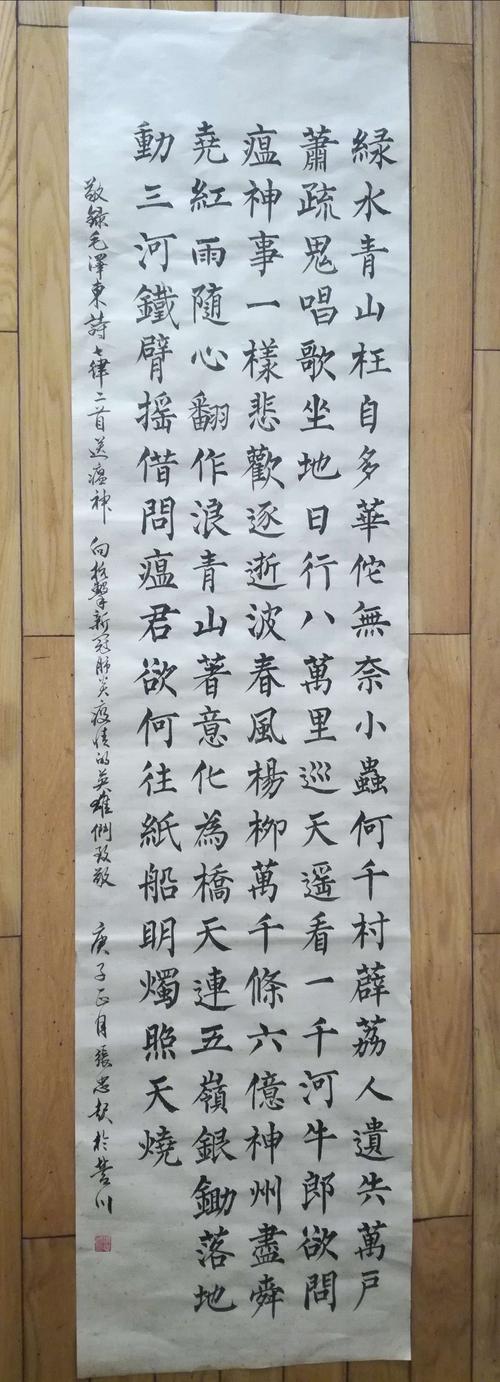 緑水青山枉自多華佗無奈小蟲何千村薜荔人遺矢萬戸
蕭疏鬼唱歌坐地日行八萬里巡天遥看一千河牛郎欲問
瘟神事一樣悲歡逐逝波春風楊柳萬千條六億神州盡舜
堯紅雨随心翻作浪青山著意化為橋天連五嶺銀鋤落地
動三河鐵臂摇借問瘟君欲何往紙船明燭照天燒
敬録毛澤東詩七律二首送瘟神 向抗擊新冠肺炎疫情的英雄們致敬 庚子正月張忠於川